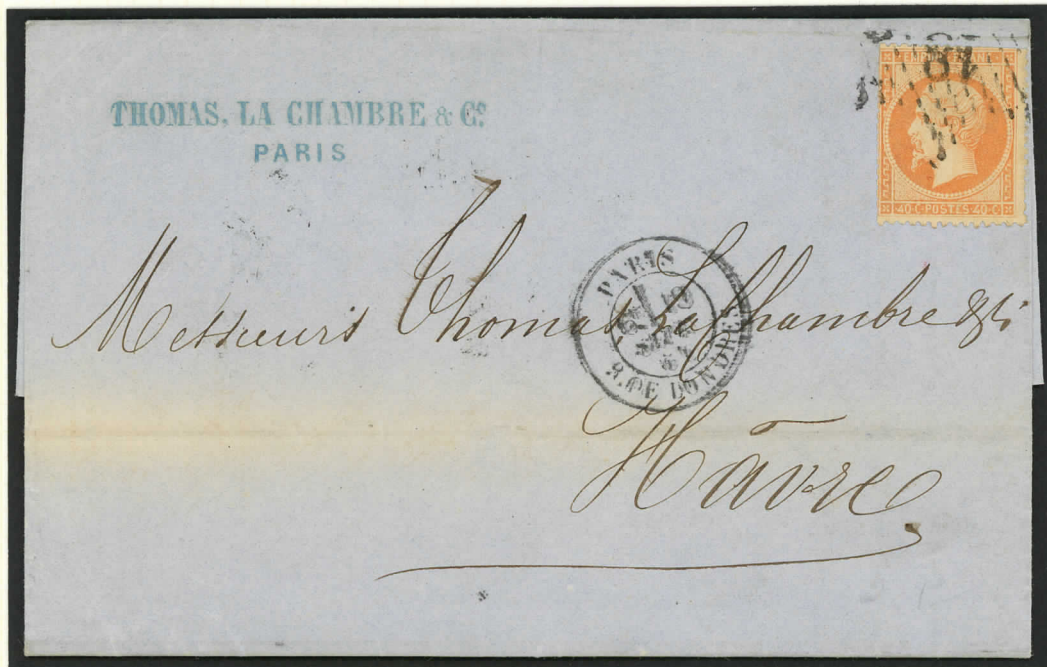 THOMAS, LA CHAMBRE & Cº
PARIS
18
40·C·POSTES·40·C
Messieurs Thomas La Chambre & Cie
PARIS
R. DE LONDRES
Hâvre